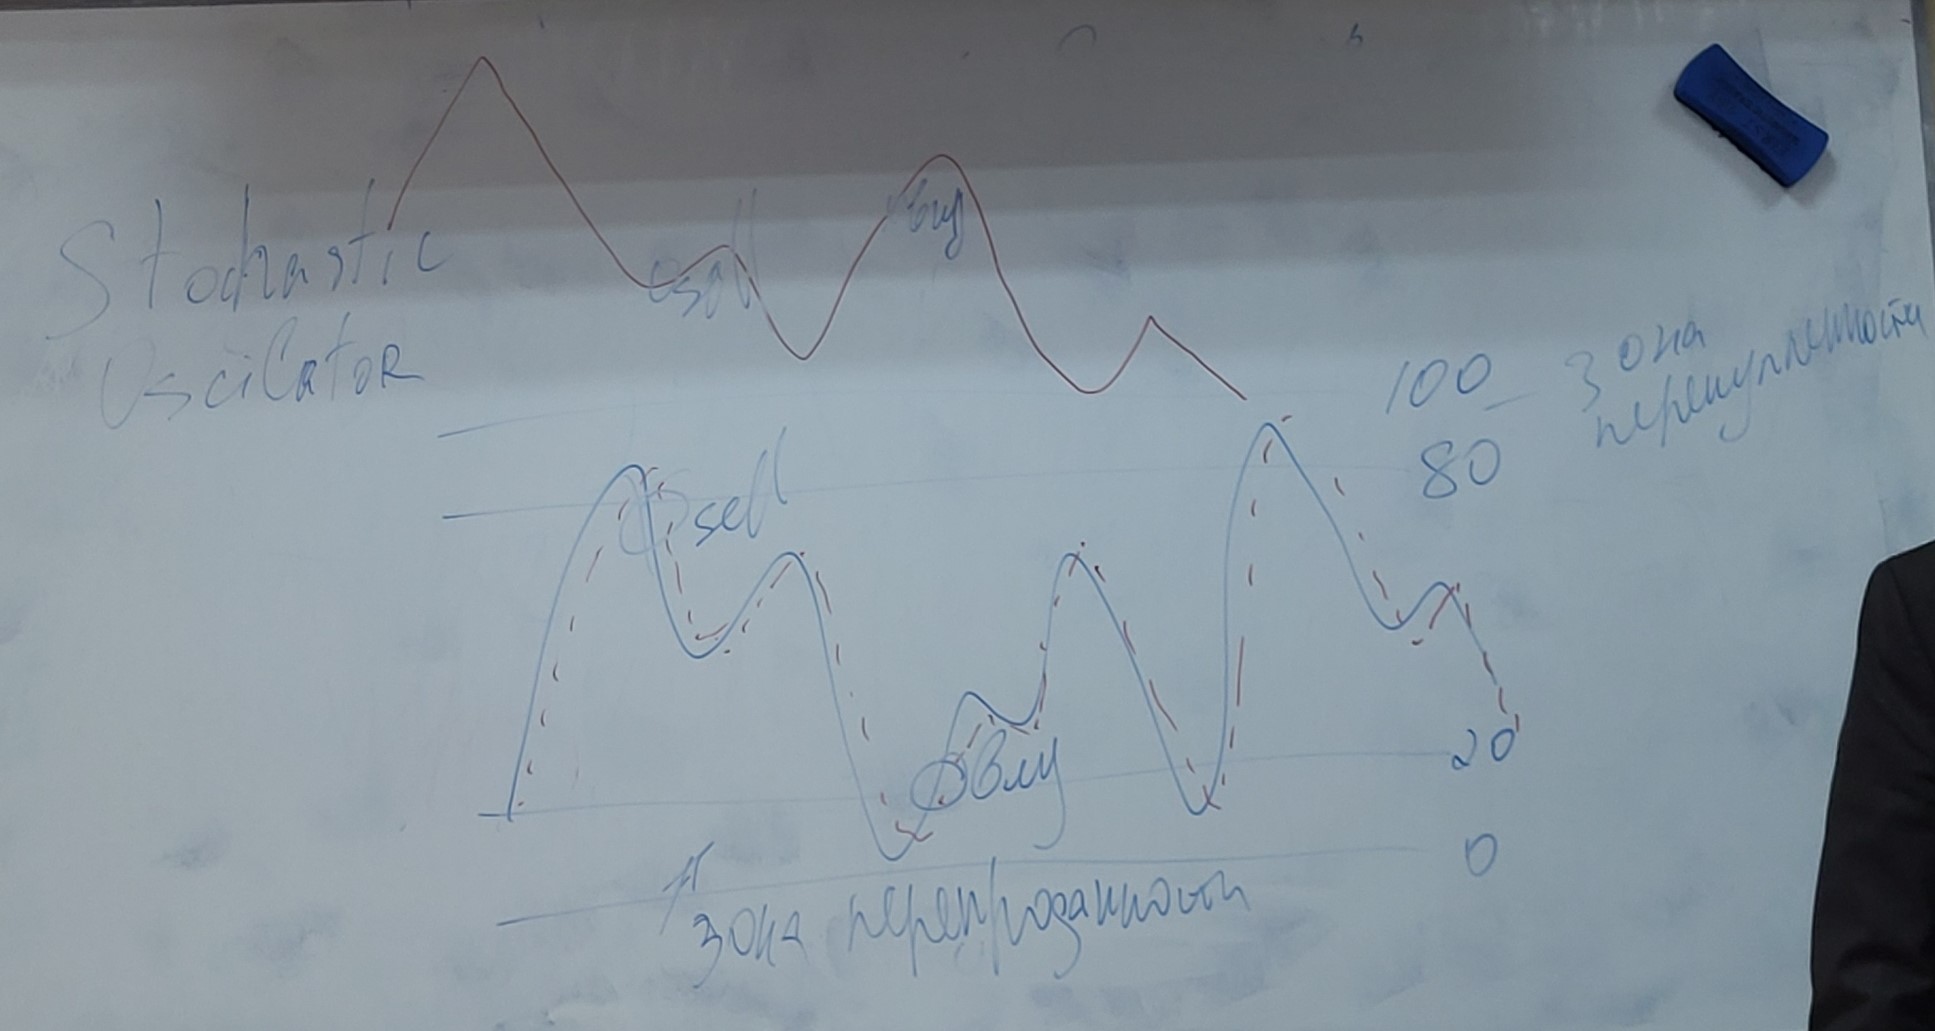 Stochastic
Oscilator
sell
buy
100
80
зона
перекупленности
sell
buy
20
0
зона перепроданности